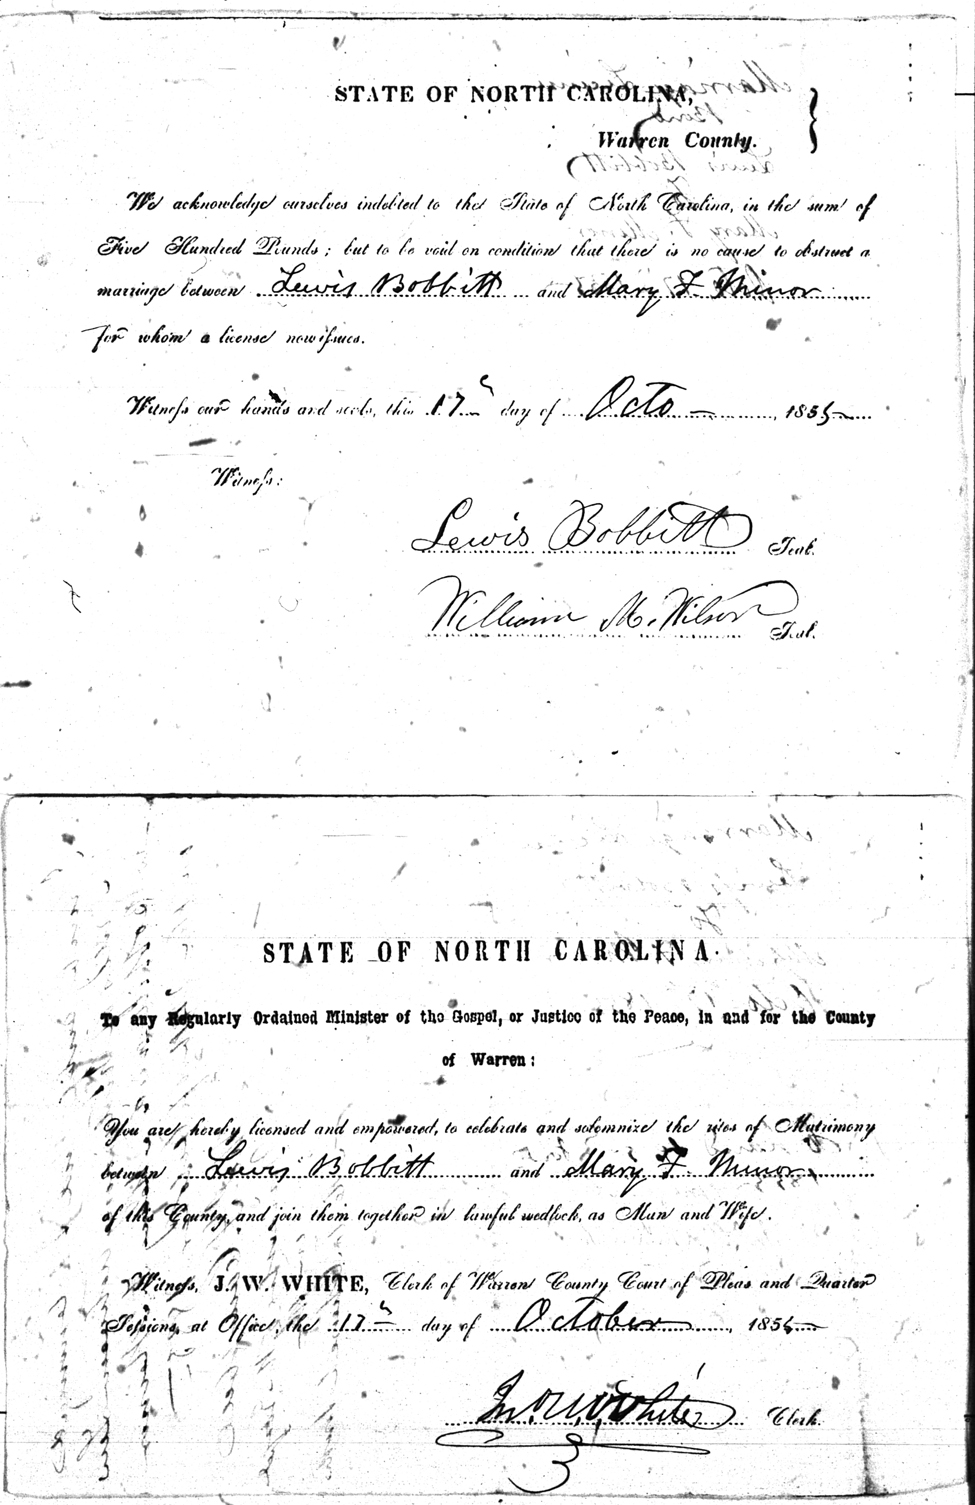 STATE OF NORTH CAROLINA,
Warren County.
We acknowledge ourselves indebted to the State of North Carolina, in the sum of
Five Hundred Pounds; but to be void on condition that there is no cause to obstruct a
marriage between Lewis Bobbitt and Mary F Minor
for whom a license now issues.
Witness our hands and seals, this 17th day of Octo 1855
Witness:
Lewis Bobbitt Seal.
William M. Wilson Seal.
STATE OF NORTH CAROLINA.
To any Regularly Ordained Minister of the Gospel, or Justice of the Peace, in and for the County
of Warren:
You are hereby licensed and empowered, to celebrate and solemnize the rites of Matrimony
between Lewis Bobbitt and Mary F Minor,
of this County, and join them together in lawful wedlock, as Man and Wife.
Witness, J. W. WHITE, Clerk of Warren County Court of Pleas and Quarter
Sessions, at Office, the 17th day of October, 1855
Jno. W. White Clerk.